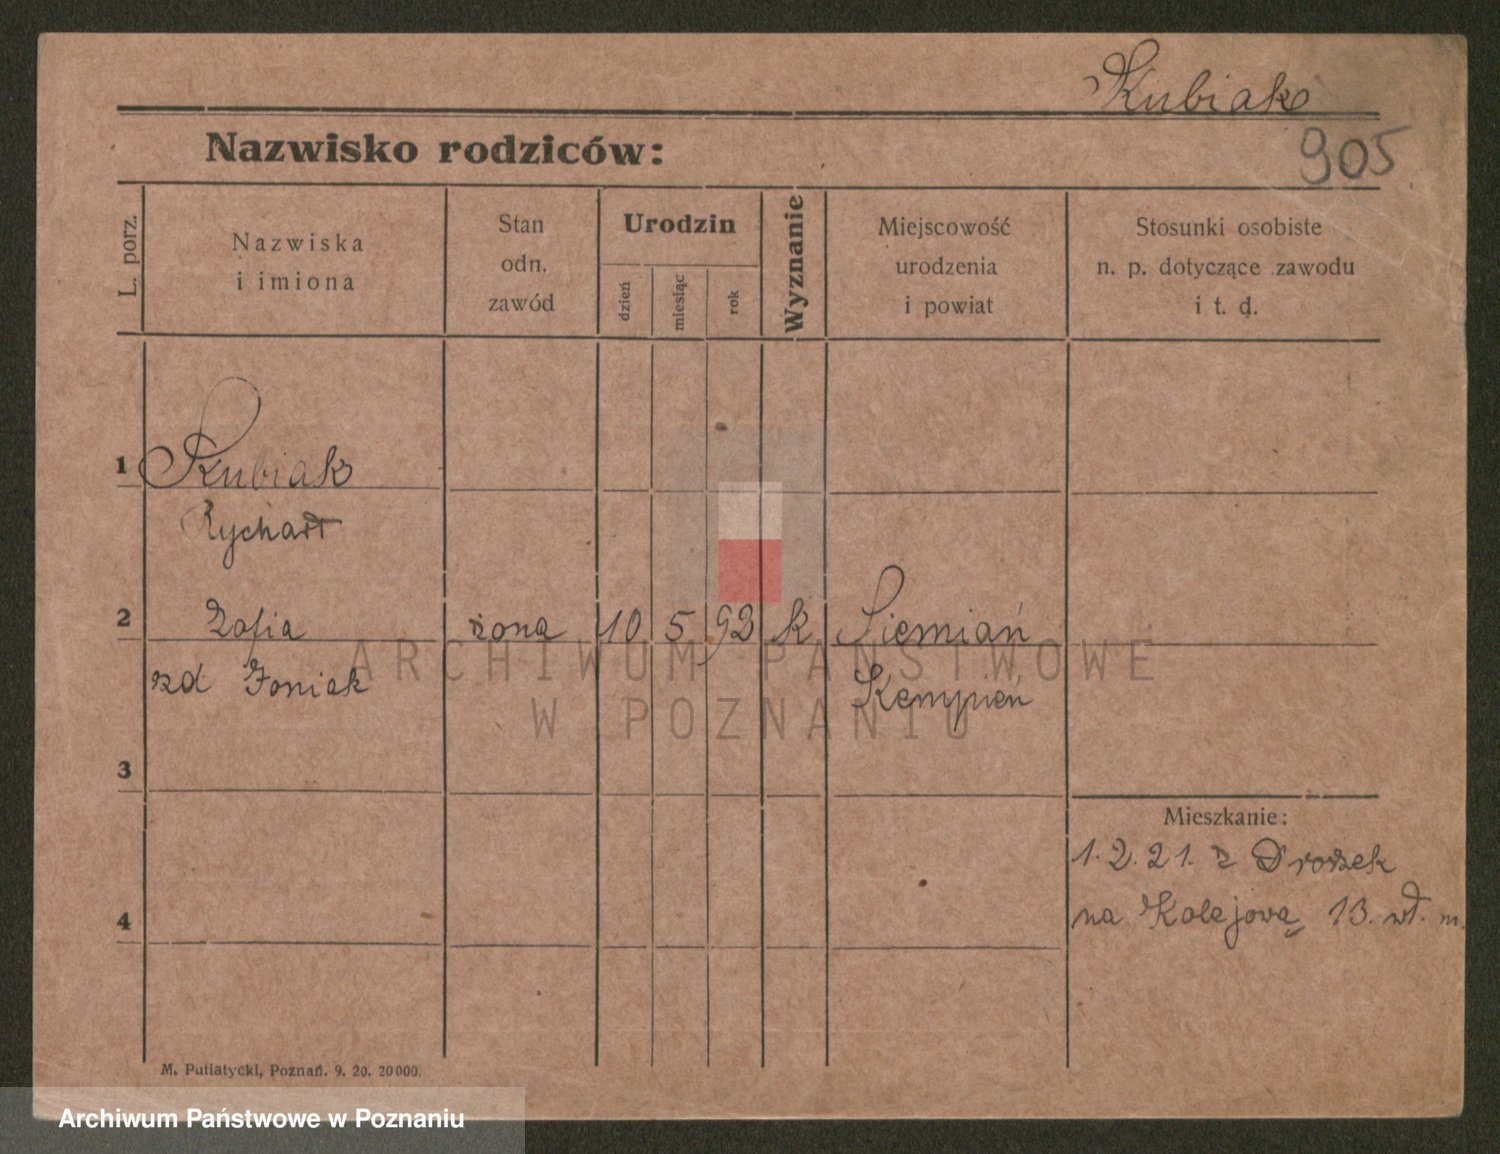 Kubiak
905
Nazwisko rodziców:
L. porz.
Nazwiska
i imiona
Stan
odn.
zawód
Urodzin
dzień
miesiąc
rok
Wyznanie
Miejscowość
urodzenia
i powiat
Stosunki osobiste
n. p. dotyczące zawodu
i t. d.
1 Kubiak
Rychart
2 Zofia żona 10 5 93 k Siemiań
zd Joniak Kempień
3
Mieszkanie:
1. 2. 21. z Drożek
4
na Kolejową 13. wł. m.
M. Putiatycki, Poznań. 9. 20. 20000.
ARCHIWUM PAŃSTWOWE
W POZNANIU
Archiwum Państwowe w Poznaniu